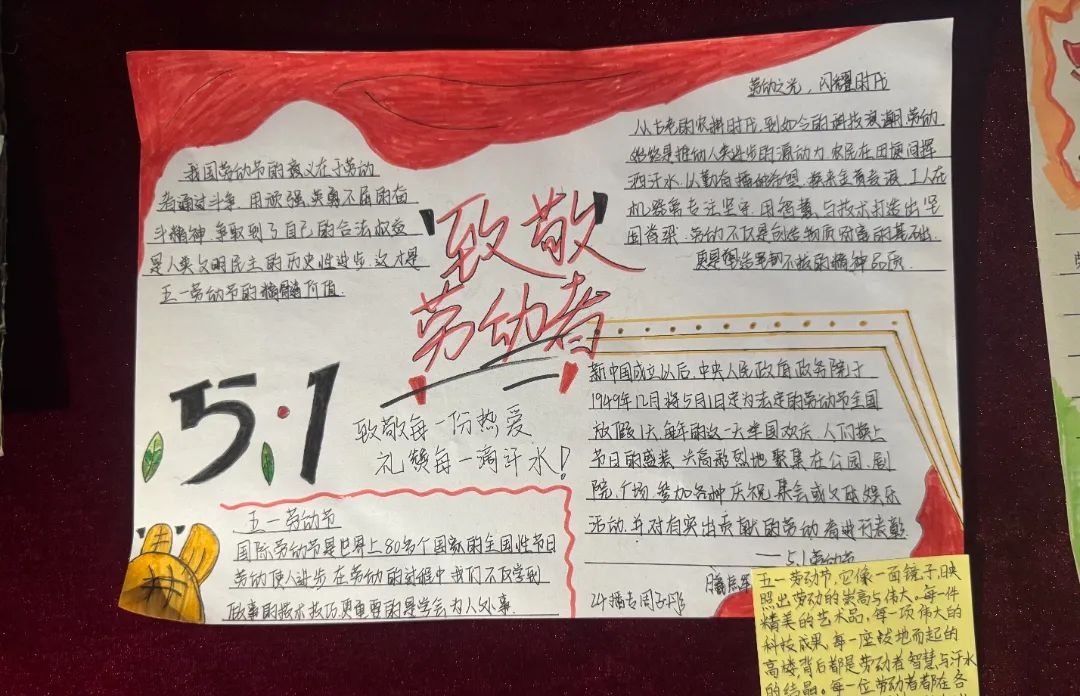 我国劳动节的意义在于劳动
者通过斗争,用顽强、英勇不屈的奋
斗精神,争取到了自己的合法权益
是人类文明民主的历史性进步,这才是
五一劳动节的精髓价值.
致敬
劳动者
劳动之光,闪耀时代
从古老的农耕时代,到如今的科技浪潮,劳动
始终是推动人类进步的源动力.农民在田间挥
洒汗水,以勤劳播种希望,换来
工人在
机器旁专注坚守,用智慧与技术打造出坚
劳动不仅是创造物质财富的基础.
更是塑造
的精神品质.
5·1
致敬每一份热爱
礼赞每一滴汗水!
五一劳动节
国际劳动节是世界上80多个国家的全国性节日
劳动使人进步,在劳动的过程中我们不仅学到
做事的技术技巧,更重要的是学会为人处事.
新中国成立以后,中央人民政府政务院于
1949年12月将5月1日定为法定的劳动节全国
放假1天,每年的这一天举国欢庆,人们换上
节日的盛装,兴高彩烈地聚集在公园、剧
院、广场,参加各种庆祝集会或文体娱乐
活动,并对有突出贡献的劳动者进行表彰.
——5.1劳动节
24播音周子
五一劳动节,它像一面镜子,映
照出劳动的崇高与伟大。每一件
精美的艺术品,每一项伟大的
科技成果,每一座拔地而起的
高楼,背后都是劳动者智慧与汗水
的结晶。每一位劳动者都在各